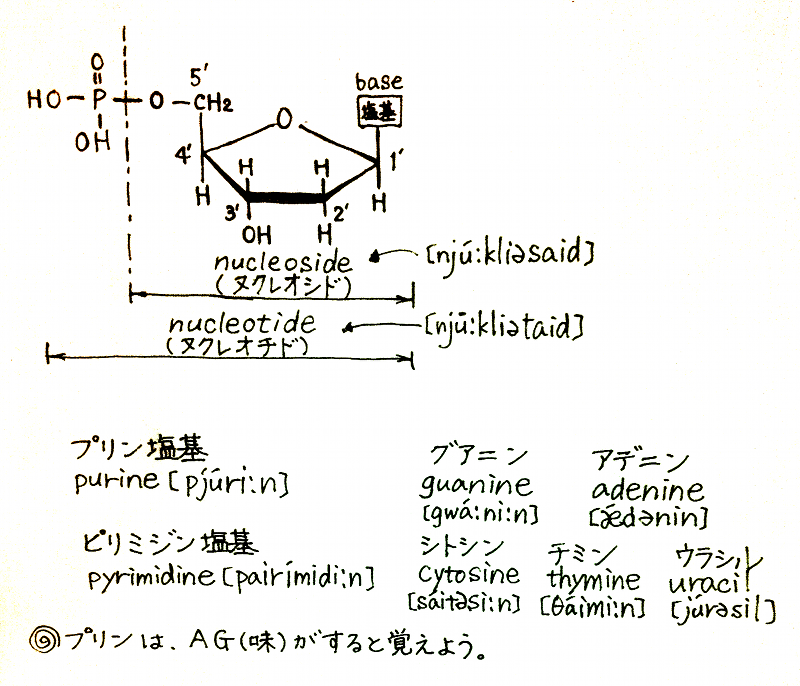 O
5'
base
HO-P-O-CH2
O
塩基
OH
4'
1'
H
H
H
H
3'
2'
OH
H
nucleoside
[njú:kliəsaid]
(ヌクレオシド)
nucleotide
[njū:kliətaid]
(ヌクレオチド)
プリン塩基
グアニン
アデニン
purine [pjúri:n]
guanine
adenine
[gwá:ni:n]
[ǽdənin]
ピリミジン塩基
シトシン
チミン
ウラシル
pyrimidine [pairímidi:n]
cytosine
thymine
uracil
[sáitəsi:n]
[θáimi:n]
[júrəsil]
プリンは、AG(味)がすると覚えよう。